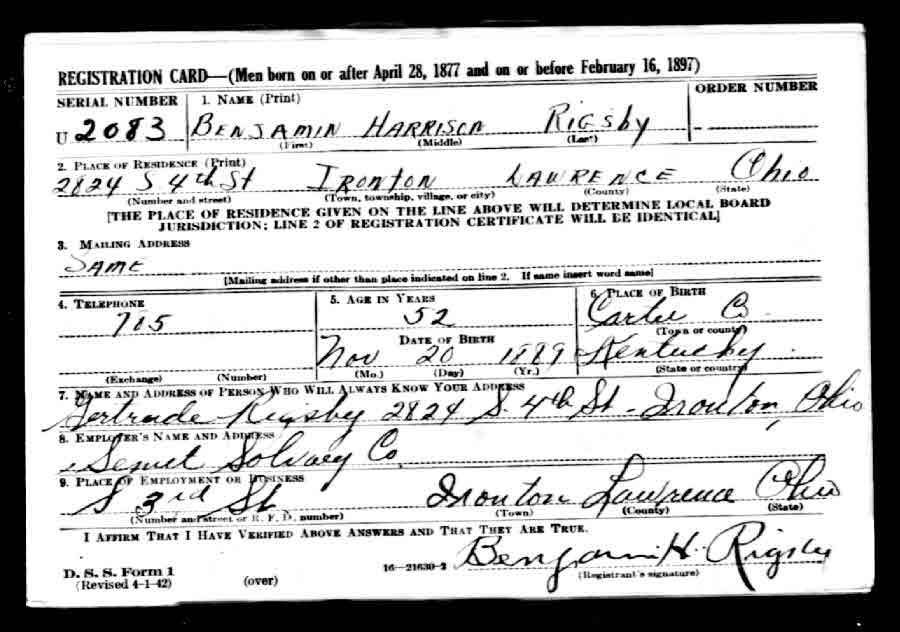 REGISTRATION CARD—(Men born on or after April 28, 1877 and on or before February 16, 1897)
SERIAL NUMBER 1. NAME (Print) ORDER NUMBER
U 2083 BENJAMIN HARRISON RIGSBY –
(First) (Middle) (Last)
2. PLACE OF RESIDENCE (Print)
2824 S 4th St IRONTON LAWRENCE Ohio
(Number and street) (Town, township, village, or city) (County) (State)
[THE PLACE OF RESIDENCE GIVEN ON THE LINE ABOVE WILL DETERMINE LOCAL BOARD
JURISDICTION; LINE 2 OF REGISTRATION CERTIFICATE WILL BE IDENTICAL]
3. MAILING ADDRESS
SAME
[Mailing address if other than place indicated on line 2. If same insert word same]
4. TELEPHONE 5. AGE IN YEARS 6. PLACE OF BIRTH
705 52 Carter Co.
(Town or county)
DATE OF BIRTH
Nov 20 1889 Kentucky
(Exchange) (Number) (Mo.) (Day) (Yr.) (State or country)
7. NAME AND ADDRESS OF PERSON WHO WILL ALWAYS KNOW YOUR ADDRESS
Gertrude Rigsby 2824 S. 4th St - Ironton, Ohio
8. EMPLOYER'S NAME AND ADDRESS
Semet Solvay Co.
9. PLACE OF EMPLOYMENT OR BUSINESS
S 3rd St Ironton Lawrence Ohio
(Number and street or R. F. D. number) (Town) (County) (State)
I AFFIRM THAT I HAVE VERIFIED ABOVE ANSWERS AND THAT THEY ARE TRUE.
Benjamin H. Rigsby
D. S. S. Form 1
(Revised 4-1-42) (over) 16—21630-2 (Registrant's signature)